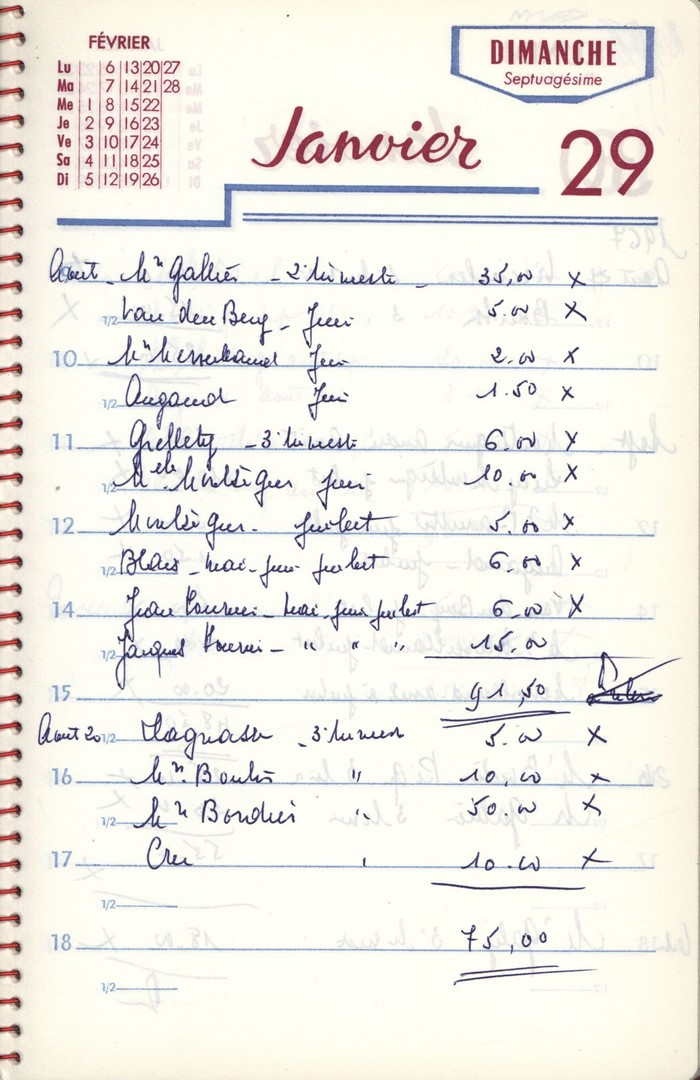 FÉVRIER
Lu 6 13 20 27
Ma 7 14 21 28
Me 1 8 15 22
Je 2 9 16 23
Ve 3 10 17 24
Sa 4 11 18 25
Di 5 12 19 26
DIMANCHE
Septuagésime
Janvier 29
Aout - - 2e trimestre - 35,00 X
1/2 Van den Berg - Juin 5.00 X
10 Juin 2.00 X
1/2 Augaud Juin 1.50 X
11 - 3e trimestre 6.00 X
1/2 Melle Juin 10.00 X
12 - Juillet 5.00 X
1/2 Blais - mai - juin juillet 6.00 X
14 Jean - mai juin juillet 6.00 X
1/2 Jacques - " " " 15.00
15 91,50
Aout 20 1/2 - 3e trimest 5.00 X
16 Mr. " 10,00 X
1/2 Mr Bordier " 50.00 X
17 10.00 X
1/2
18 75,00
1/2